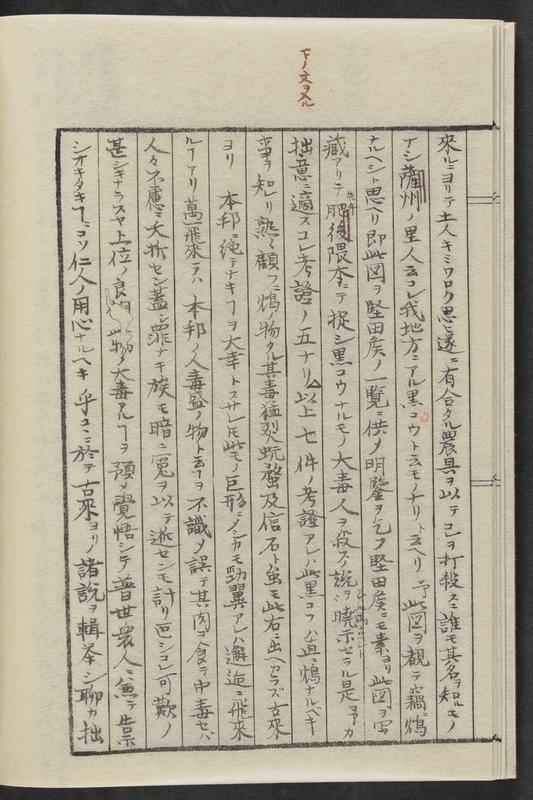 下ノ文ヲ入ル
來ルニヨリテ土人キミワロク思ヒ遂ニ有合タル農具ヲ以テコレヲ打殺スニ誰モ其名ヲ知ルモノ
ナシ薩州ノ里人云コレ我地方ニアル黒コウト云モノナリト云ヘリ予此図ヲ観テ竊ニ鴆
ナルヘシト思ヘリ即此図ヲ堅田侯ノ一覧ニ供メ明鑒ヲ乞フ堅田侯ニモ素ヨリ此図ヲ写
藏アリテ先年肥後隈本ニテ捉シ黒コウナルモノ大毒人ヲ殺スノ説ヲ暁示セラル是予カ
拙意ニ適スコレ考證ノ五ナリ以上七件ノ考證アレハ此黒コウハ直ニ鴆ナルベキ
事ヲ知リ熟顧フニ鴆ノ物タル其毒猛烈蚖蝥及信石ト虽モ此右ニ出ヘカラズ古來
ヨリ本邦ニ絶テナキヿヲ大幸トスサレ𪜈此モノ巨形ニメシカモ勁翼アレハ邂逅ニ飛來
ルヿアリ萬一飛來テハ本邦ノ人毒盛ノ物ト云ヲ不識メ誤テ其肉ヲ食テ中毒セバ
人々不慮ニ夭折セン蓋シ罪ナキ族モ暗ニ冤ヲ以テ逝センモ計リ叵シコレ可歎ノ
甚シキナラスヤ上位ノ良此物ノ大毒アルヿヲ預メ覺悟シテ普世衆人ニ兼テ告示
シオキタキヿニコソ仁人ノ用心ナルヘキ乎コヽニ於テ古來ヨリノ諸説ヲ輯荟シ聊カ拙